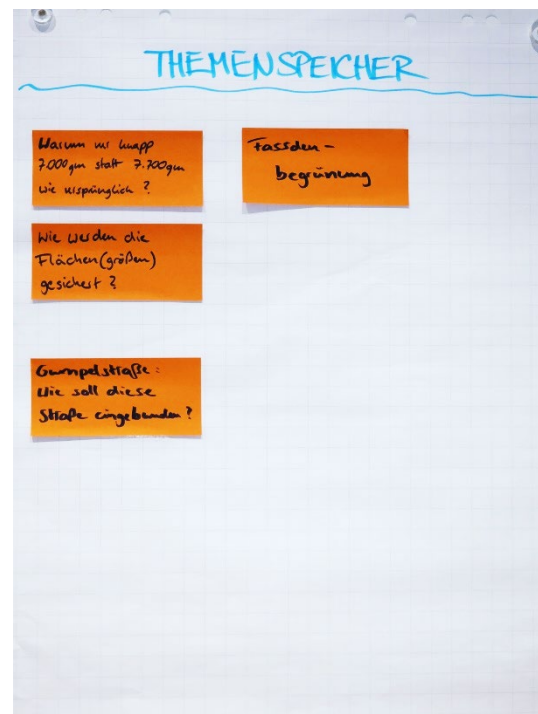 THEMENSPEICHER
Warum nur knapp
7.000 qm statt 7.700 qm
wie ursprünglich ?
Wie werden die
Flächen(größen)
gesichert ?
Gumpelstraße :
Wie soll diese
Straße eingebunden ?
Fassden-
begrünung